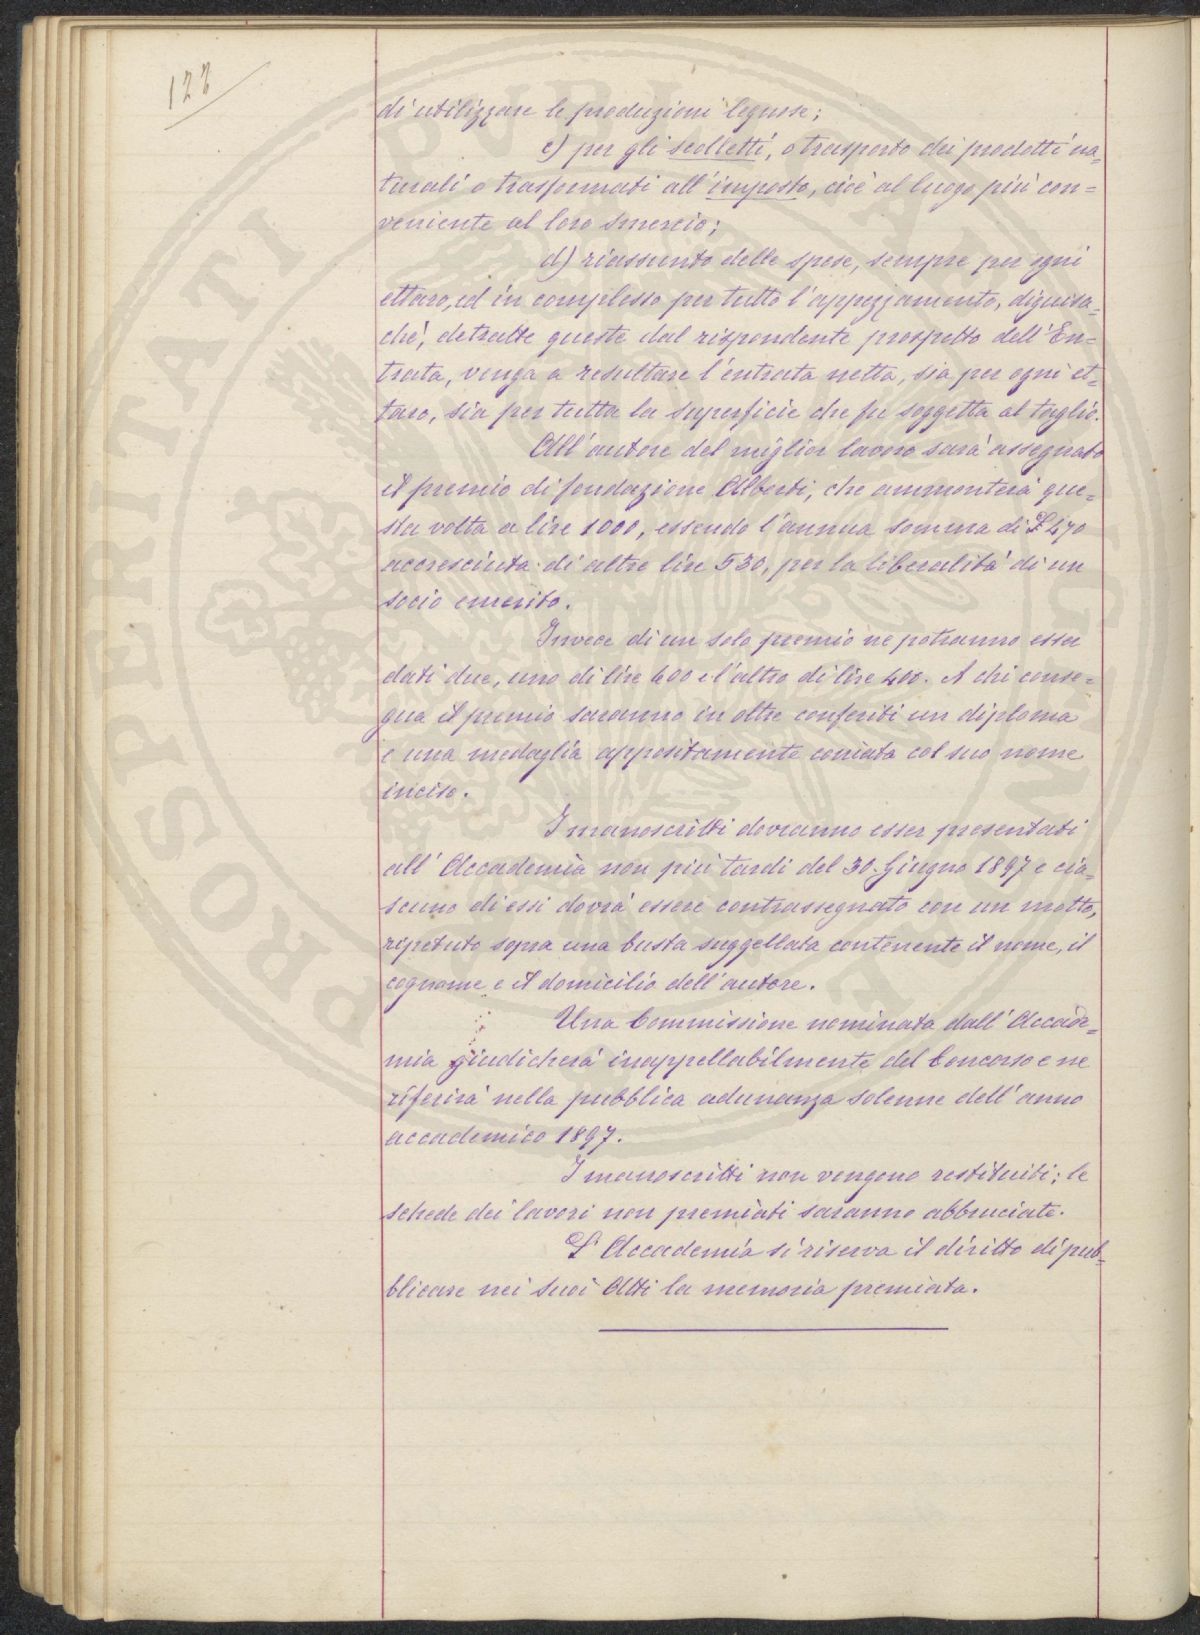 122
di utilizzare le produzioni legnose;
c) per gli scolletti, o trasporto dei prodotti na=
turali o trasformati all'imposto, cioè al luogo più con=
veniente al loro smercio;
d) riassunto delle spese, sempre per ogni
ettaro, ed in complesso per tutto l'appezzamento, diguisa=
ché, detratte queste dal rispondente prospetto dell'En=
trata, venga a resultare l'entrata netta, sia per ogni et=
taro, sia per tutta la superficie che fu soggetta al taglio.
All'autore del miglior lavoro sarà assegnato
il premio di fondazione Alberti, che ammonterà que=
sta volta a lire 1000, essendo l'annua somma di £ 470
accresciuta di altre lire 530, per la liberalità di un
socio emerito.
Invece di un solo premio ne potranno esser
dati due, uno di lire 600 e l'altro di lire 400. A chi conse=
gua il premio saranno in oltre conferiti un diploma
e una medaglia appositamente coniata col suo nome
inciso.
I manoscritti dovranno esser presentati
all'Accademia non più tardi del 30. Giugno 1897 e cia=
scuno di essi dovrà essere contrassegnato con un motto,
ripetuto sopra una busta suggellata contenente il nome, il
cognome e il domicilio dell'autore.
Una Commissione nominata dall'Accade=
mia giudicherà inappellabilmente del Concorso e ne
riferirà nella pubblica adunanza solenne dell'anno
accademico 1897.
I manoscritti non vengono restituiti; le
schede dei lavori non premiati saranno abbruciate.
L'Accademia si riserva il diritto di pub=
blicare nei suoi Atti la memoria premiata.
PROSPERITATI PUBLICAE AUGENDAE